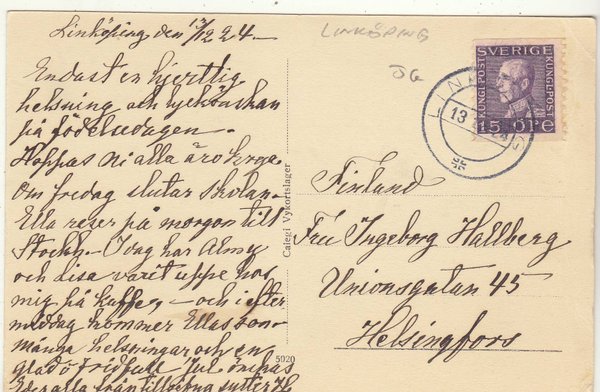 Linköping den 13/12 24.-
Endast en hjertlig
helsning och lyckönskan
på födelsedagen.
Hoppas ni alla äro krya
Om fredag slutar skolan.
Ella reser på morgon till
Stockh.- I dag har Almy
och Lisa varit uppe hos
mig på kaffe, - och i efter
middag kommer Ellas
många helsningar och en
glad o fridfull jul önskas
Eder alla från
LINKÖPING
SVERIGE
KUNGL·POST
KUNGL·POST
15 ÖRE
LINKÖPING
13
Calegi Vykortslager
5020
Finland
Fru Ingeborg Hallberg
Unionsgatan 45
Helsingfors